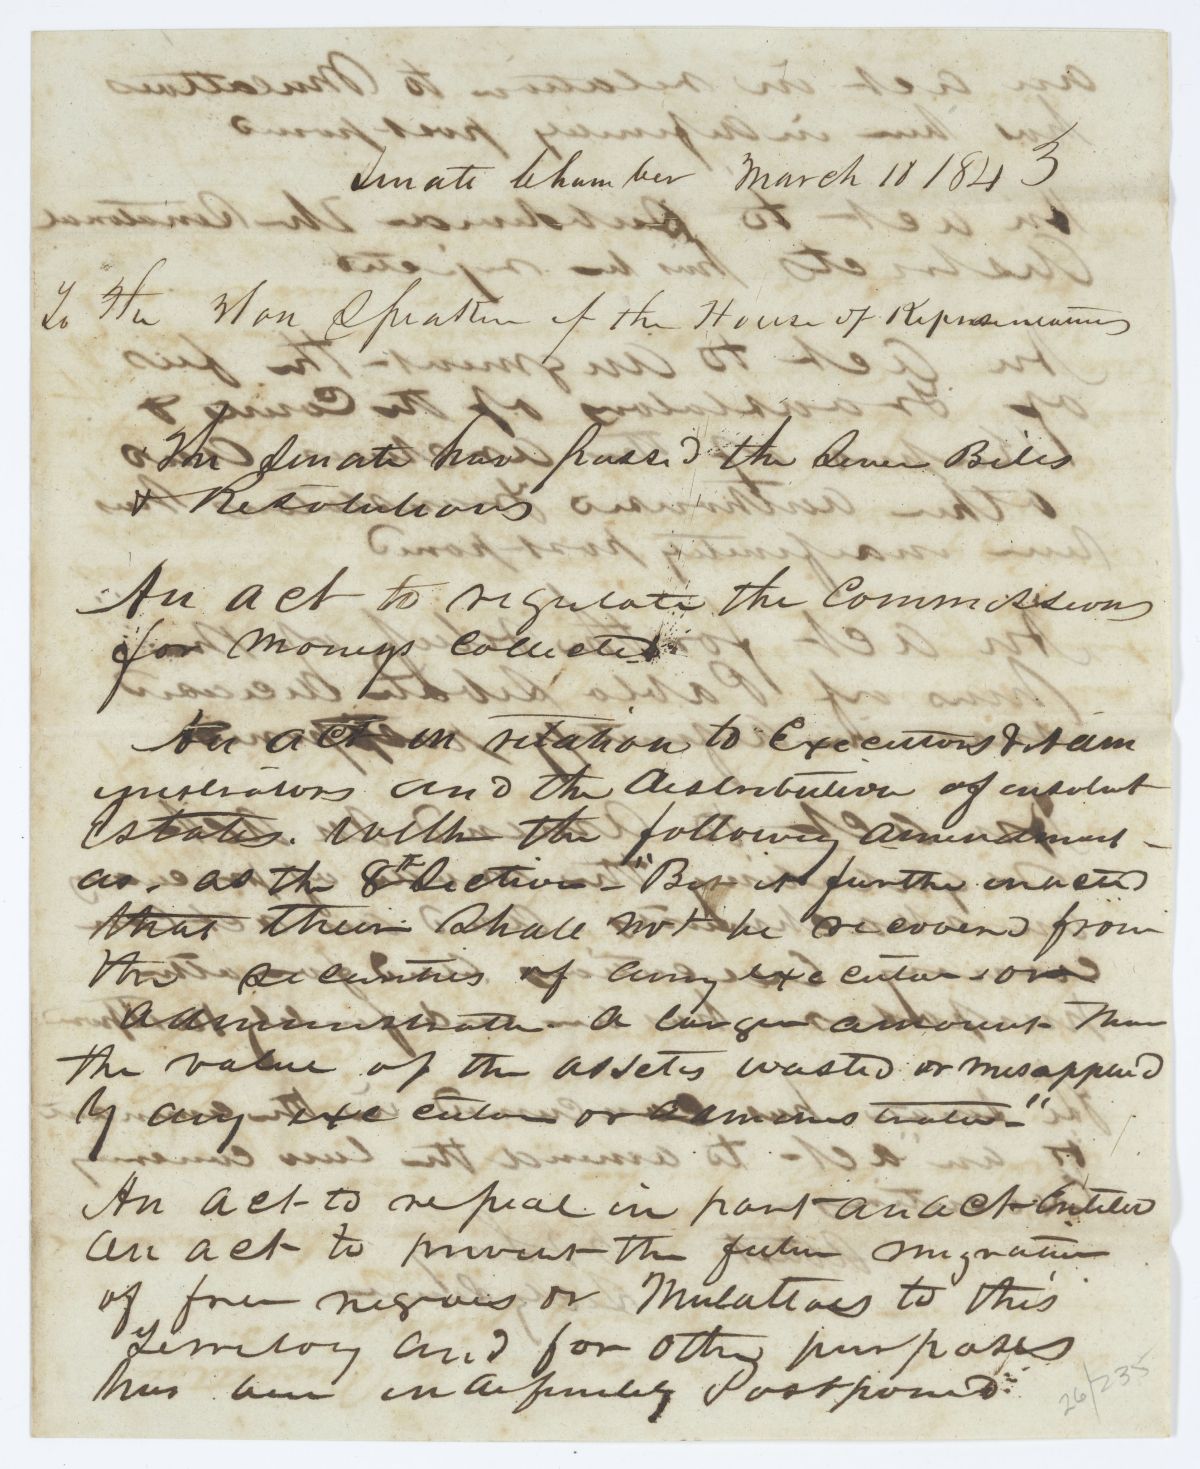 Senate Chamber March 18 1843
To the Hon Speaker of the House of Representatives
The Senate have passed the Bills
& Resolutions
An act to regulate the Commissions
for Moneys Collected
An act in relation to Executors & Adm
inistrators and the distribution of insolvt
Estates. With the following amendment
as. as the 8th Section - "Be it further enacted
that their shall not be recovered from
the securities of any executor or
administrator a larger amount than
the value of the assets wasted or misapplied
by any executor or administrator"
An act to repeal in part an act entitled
an act to prevent the future migration
of free negroes or Mulattoes to this
Territory and for other purposes
has been indefinitely Postponed
26/235